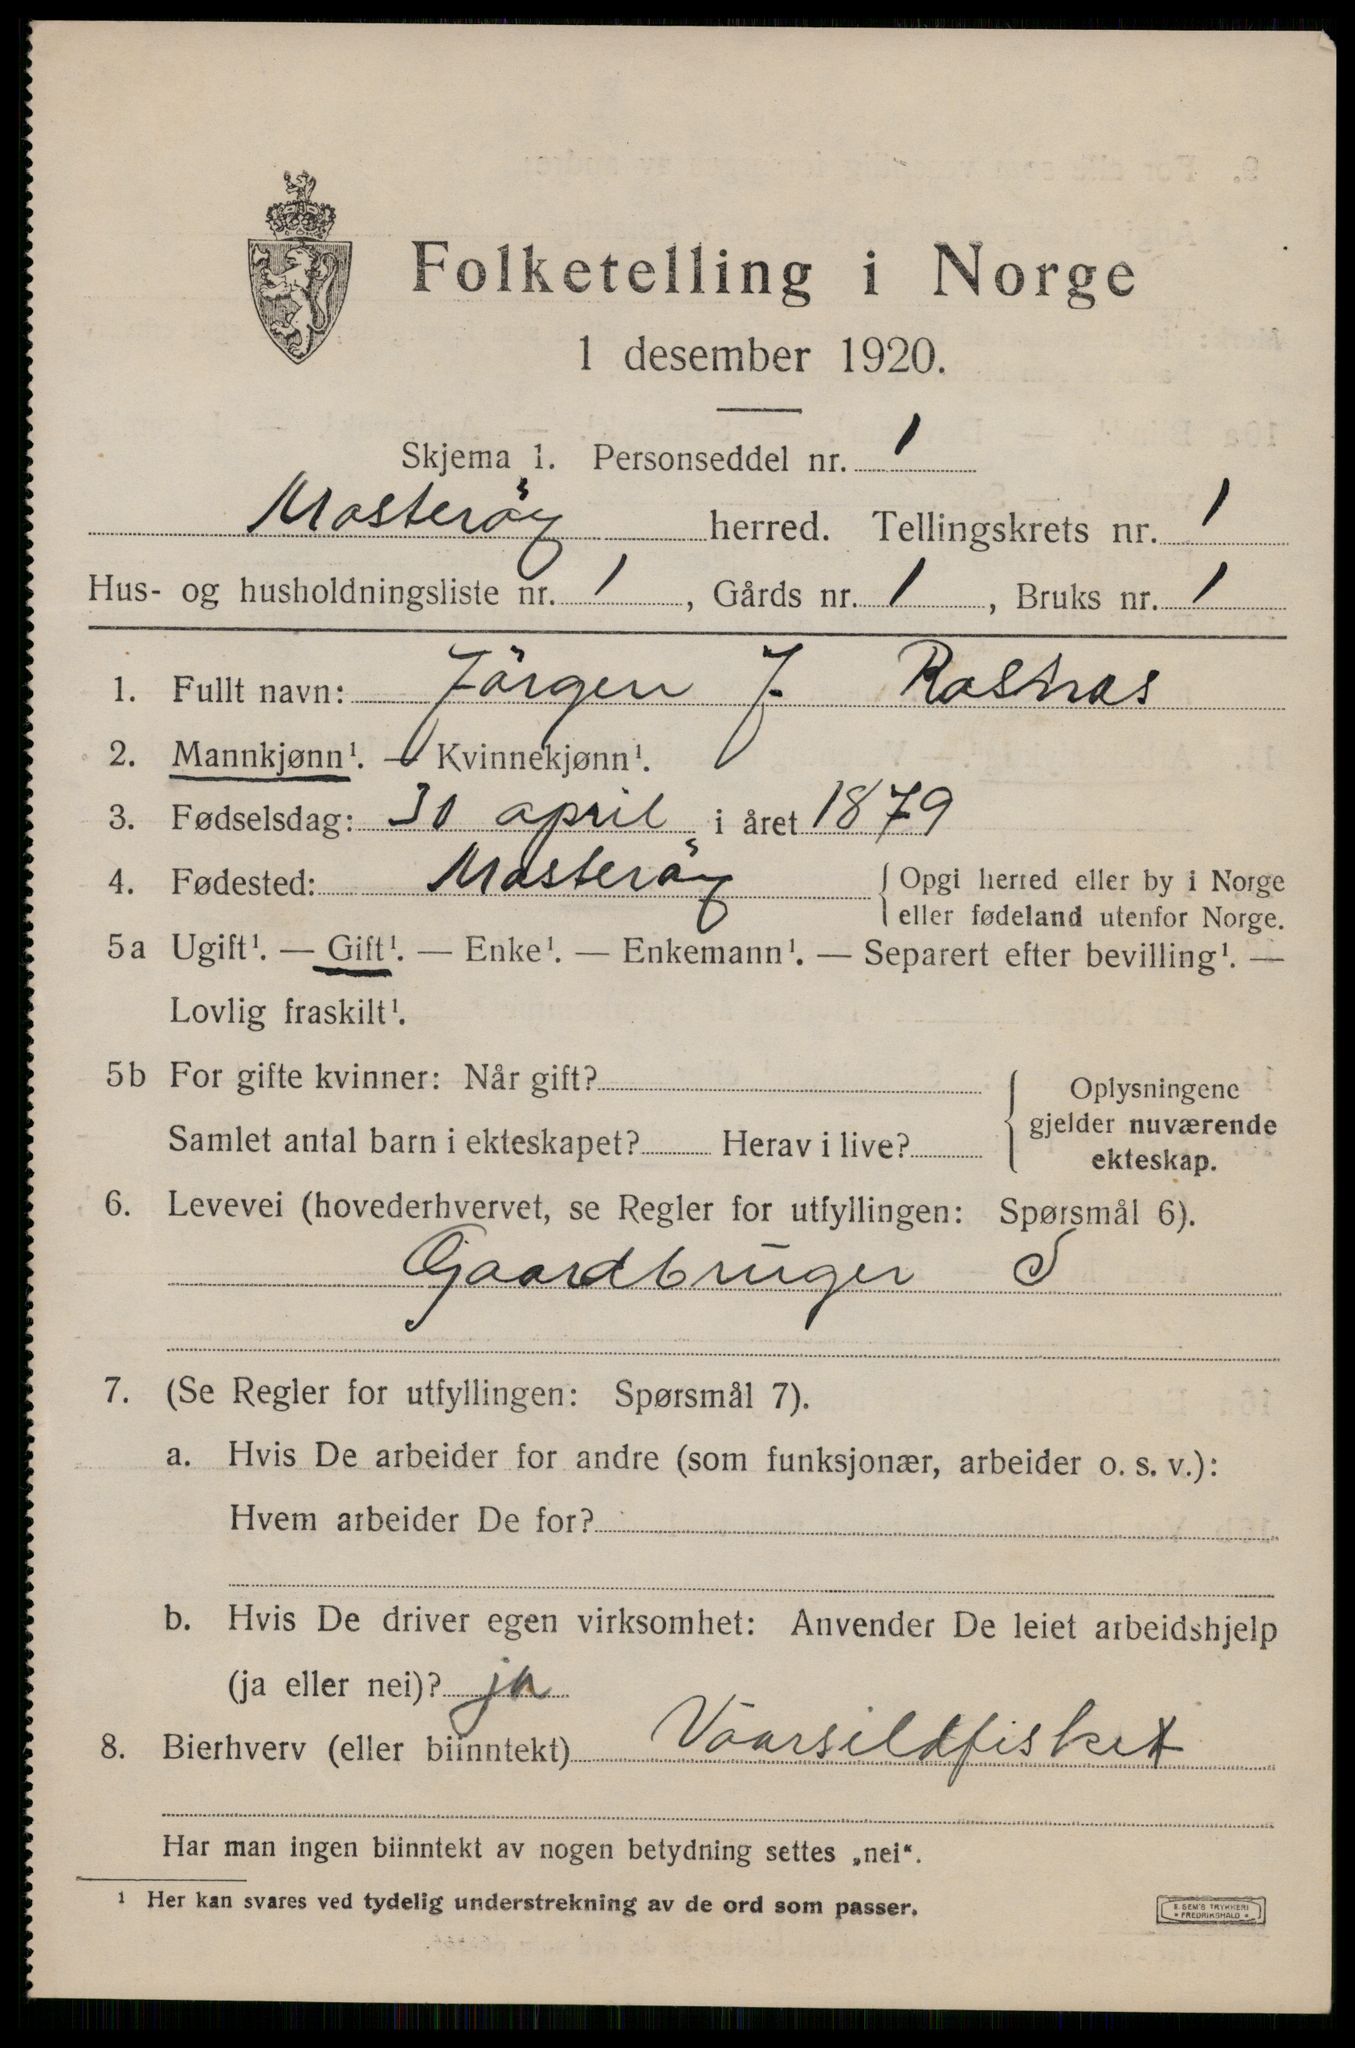 Folketelling i Norge
1 desember 1920.
Skjema 1. Personseddel nr. 1
Mosterøy herred. Tellingskrets nr. 1
Hus- og husholdningsliste nr. 1, Gårds nr. 1, Bruks nr. 1
1. Fullt navn: Jörgen J. Rosnas
2. Mannkjønn¹. — Kvinnekjønn¹.
3. Fødselsdag: 30 april i året 1879
4. Fødested: Mosteröy {Opgi herred eller by i Norge
eller fødeland utenfor Norge.
5a Ugift¹. — Gift¹. — Enke¹. — Enkemann¹. — Separert efter bevilling¹. —
Lovlig fraskilt¹.
5b For gifte kvinner: Når gift?
Samlet antal barn i ekteskapet? Herav i live?
Oplysningene
gjelder nuværende
ekteskap.
6. Levevei (hovederhvervet, se Regler for utfyllingen: Spørsmål 6).
Gaardbruger S
7. (Se Regler for utfyllingen: Spørsmål 7).
a. Hvis De arbeider for andre (som funksjonær, arbeider o. s. v.):
Hvem arbeider De for?
b. Hvis De driver egen virksomhet: Anvender De leiet arbeidshjelp
(ja eller nei)? ja
8. Bierhverv (eller biinntekt) Vaarsildfisket
Har man ingen biinntekt av nogen betydning settes „nei“.
¹ Her kan svares ved tydelig understrekning av de ord som passer.
E. SEM'S TRYKKERI
* FREDRIKSHALD *